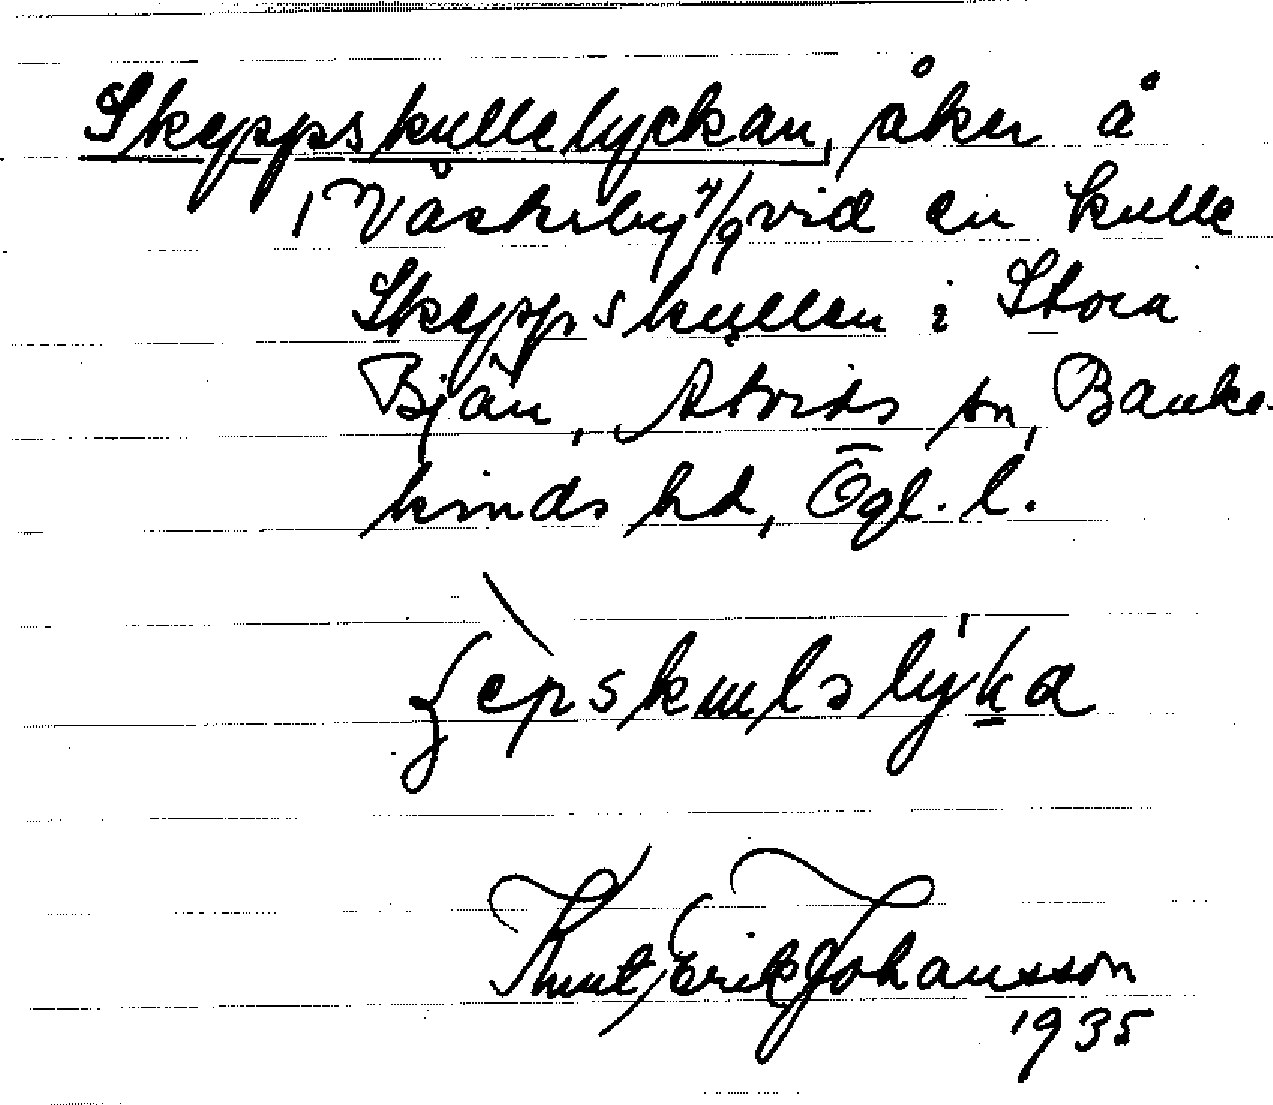 Skeppskullelyckan, åker å
Västerby 4/9 vid en kulle
Skeppskullen i Stora
Bjän, Atvids sn, Banke-
kinds hd, Ögl. l.
Knut Erik Johansson
1935